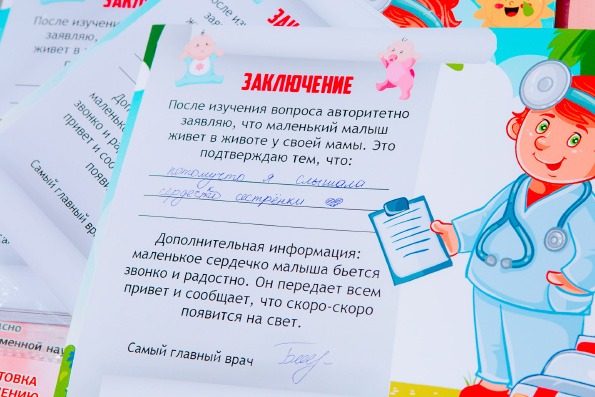 ЗАКЛЮЧЕНИЕ
После изучения вопроса авторитетно
заявляю, что маленький малыш
живет в животе у своей мамы. Это
подтверждаю тем, что:
потомучто я слышала
сердечко сестрёнки
Дополнительная информация:
маленькое сердечко малыша бьется
звонко и радостно. Он передает всем
привет и сообщает, что скоро-скоро
появится на свет.
Самый главный врач
После изуч
заявляю,
живет в
маленько
звонко и ра
привет и с
по
Самый главный вра